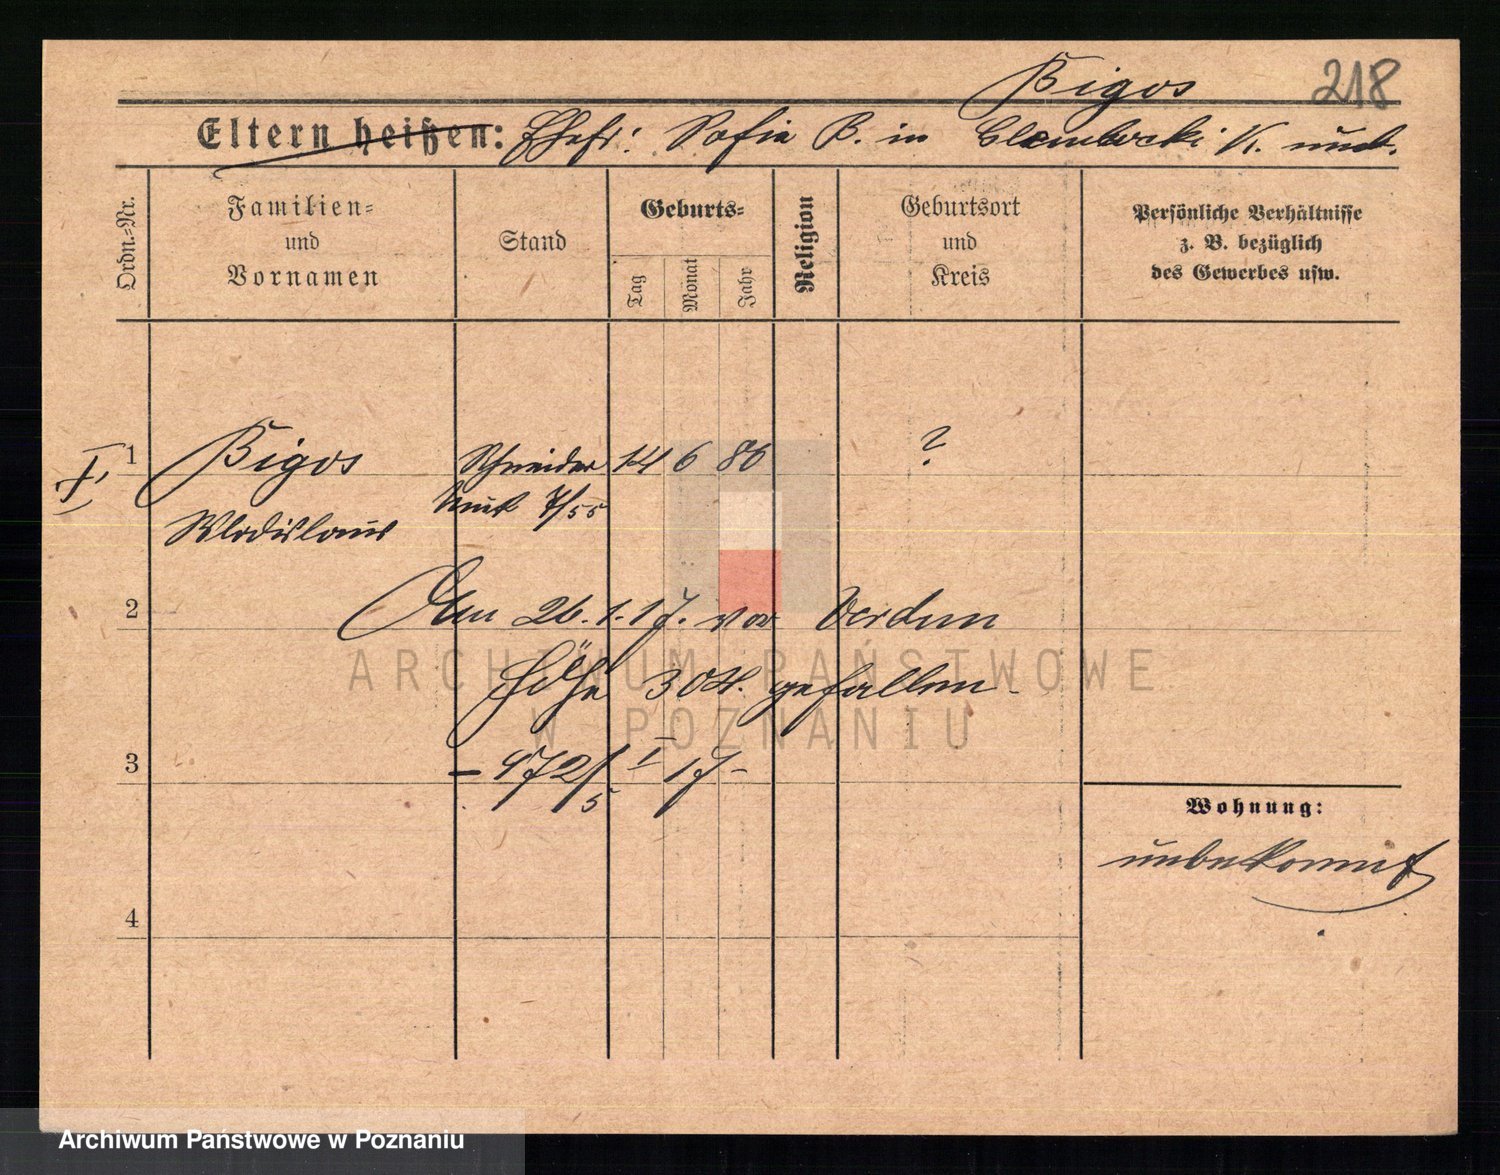 Bigos
218
Eltern heißen: Ehefr: Sofia B. in K. unt.
Ordn.-Nr.
Familien-
und
Vornamen
Stand
Geburts-
Tag
Monat
Jahr
Religion
Geburtsort
und
Kreis
Persönliche Verhältnisse
z. B. bezüglich
des Gewerbes usw.
I. 1 Bigos Schneider 14 6 86 ?
Wladislaus 7/55
2 Am 26.1.17. vor Verdun
Höhe 304. gefallen
3 - 972/5 I 17 -
Wohnung:
unbekannt
4
ARCHIWUM PAŃSTWOWE
W POZNANIU
Archiwum Państwowe w Poznaniu